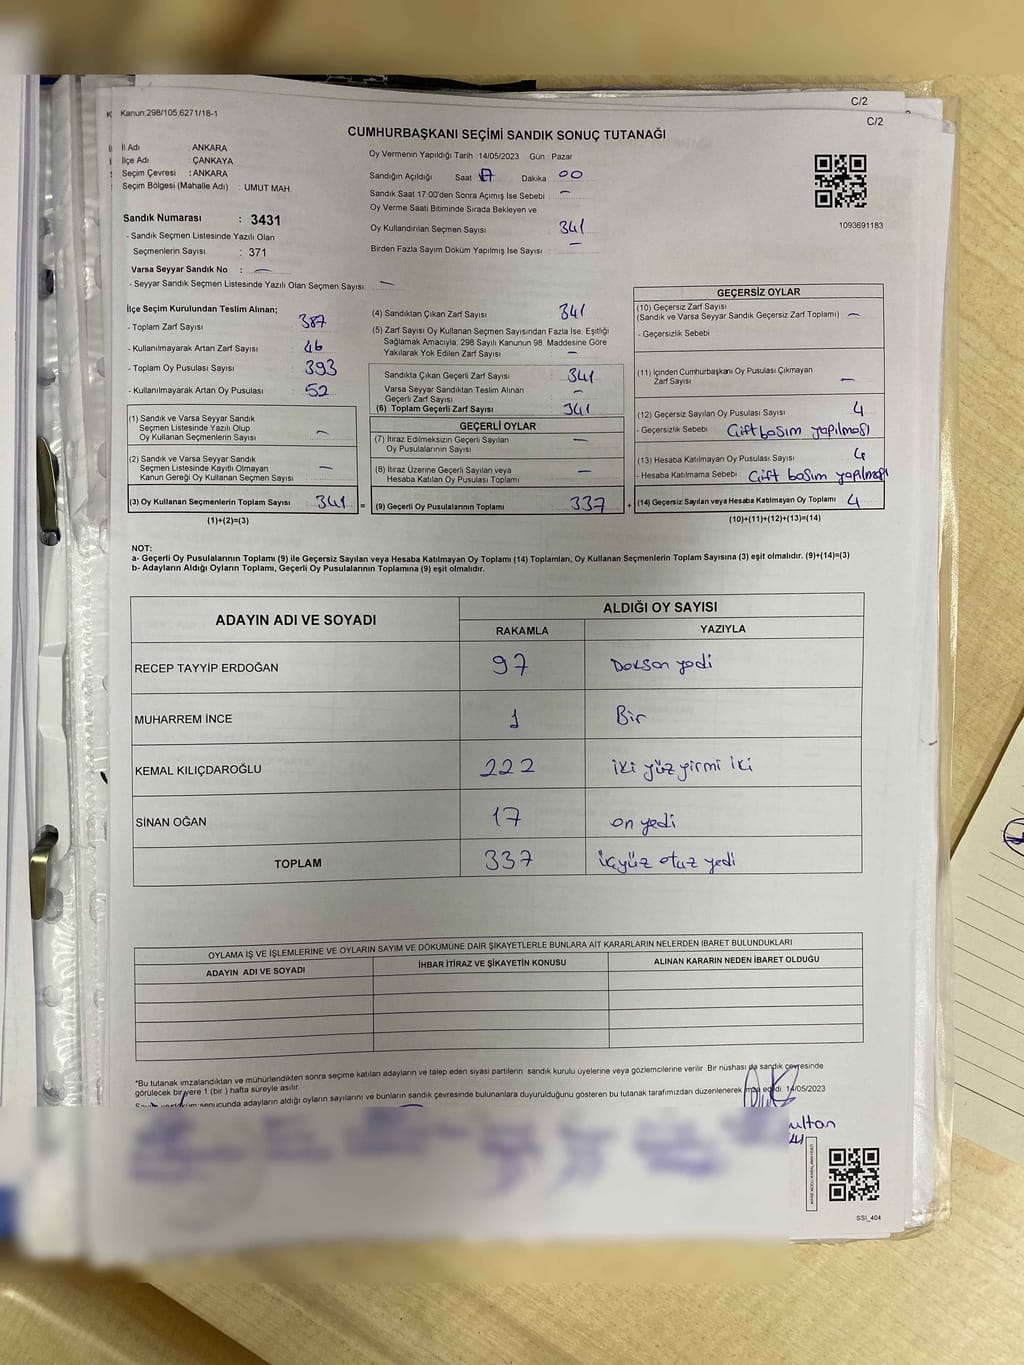 C/2
C/2
Kanun,298/105,6271/18-1
CUMHURBAŞKANI SEÇİMİ SANDIK SONUÇ TUTANAĞI
İl Adı : ANKARA
İlçe Adı : ÇANKAYA
Seçim Çevresi : ANKARA
Seçim Bölgesi (Mahalle Adı) : UMUT MAH.
Sandık Numarası : 3431
- Sandık Seçmen Listesinde Yazılı Olan
Seçmenlerin Sayısı : 371
Varsa Seyyar Sandık No : —
- Seyyar Sandık Seçmen Listesinde Yazılı Olan Seçmen Sayısı : —
Oy Vermenin Yapıldığı Tarih : 14/05/2023 Gün : Pazar
Sandığın Açıldığı Saat 17 Dakika : 00
Sandık Saat 17:00'den Sonra Açımış İse Sebebi : —
Oy Verme Saati Bitiminde Sırada Bekleyen ve
Oy Kullandırılan Seçmen Sayısı : 341
Birden Fazla Sayım Döküm Yapılmış İse Sayısı : —
1093691183
İlçe Seçim Kurulundan Teslim Alınan;
- Toplam Zarf Sayısı : 387
- Kullanılmayarak Artan Zarf Sayısı : 46
- Toplam Oy Pusulası Sayısı : 393
- Kullanılmayarak Artan Oy Pusulası : 52
(1) Sandık ve Varsa Seyyar Sandık
Seçmen Listesinde Yazılı Olup
Oy Kullanan Seçmenlerin Sayısı : —
(2) Sandık ve Varsa Seyyar Sandık
Seçmen Listesinde Kayıtlı Olmayan
Kanun Gereği Oy Kullanan Seçmen Sayısı : —
(3) Oy Kullanan Seçmenlerin Toplam Sayısı : 341 =
(1)+(2)=(3)
(4) Sandıktan Çıkan Zarf Sayısı : 341
(5) Zarf Sayısı Oy Kullanan Seçmen Sayısından Fazla İse, Eşitliği
Sağlamak Amacıyla; 298 Sayılı Kanunun 98. Maddesine Göre
Yakılarak Yok Edilen Zarf Sayısı : —
Sandıkta Çıkan Geçerli Zarf Sayısı : 341
Varsa Seyyar Sandıktan Teslim Alınan
Geçerli Zarf Sayısı : —
(6) Toplam Geçerli Zarf Sayısı : 341
GEÇERLİ OYLAR
(7) İtiraz Edilmeksizin Geçerli Sayılan
Oy Pusulalarının Sayısı : —
(8) İtiraz Üzerine Geçerli Sayılan veya
Hesaba Katılan Oy Pusulası Toplamı : —
(9) Geçerli Oy Pusulalarının Toplamı : 337 +
GEÇERSİZ OYLAR
(10) Geçersiz Zarf Sayısı
(Sandık ve Varsa Seyyar Sandık Geçersiz Zarf Toplamı) : —
- Geçersizlik Sebebi
(11) İçinden Cumhurbaşkanı Oy Pusulası Çıkmayan
Zarf Sayısı : —
(12) Geçersiz Sayılan Oy Pusulası Sayısı : 4
- Geçersizlik Sebebi : Çift basım yapılması
(13) Hesaba Katılmayan Oy Pusulası Sayısı : 4
- Hesaba Katılmama Sebebi : Çift basım yapılması
(14) Geçersiz Sayılan veya Hesaba Katılmayan Oy Toplamı : 4
(10)+(11)+(12)+(13)=(14)
NOT:
a- Geçerli Oy Pusulalarının Toplamı (9) ile Geçersiz Sayılan veya Hesaba Katılmayan Oy Toplamı (14) Toplamları, Oy Kullanan Seçmenlerin Toplam Sayısına (3) eşit olmalıdır. (9)+(14)=(3)
b- Adayların Aldığı Oyların Toplamı, Geçerli Oy Pusulalarının Toplamına (9) eşit olmalıdır.
ADAYIN ADI VE SOYADI
ALDIĞI OY SAYISI
RAKAMLA YAZIYLA
RECEP TAYYİP ERDOĞAN 97 Doksan yedi
MUHARREM İNCE 1 Bir
KEMAL KILIÇDAROĞLU 222 iki yüz yirmi iki
SİNAN OĞAN 17 on yedi
TOPLAM 337 üçyüz otuz yedi
OYLAMA İŞ VE İŞLEMLERİNE VE OYLARIN SAYIM VE DÖKÜMÜNE DAİR ŞİKAYETLERLE BUNLARA AİT KARARLARIN NELERDEN İBARET BULUNDUKLARI
ADAYIN ADI VE SOYADI İHBAR İTİRAZ VE ŞİKAYETİN KONUSU ALINAN KARARIN NEDEN İBARET OLDUĞU
*Bu tutanak imzalandıktan ve mühürlendikten sonra seçime katılan adayların ve talep eden siyasi partilerin sandık kurulu üyelerine veya gözlemcilerine verilir. Bir nüshası da sandık çevresinde
görülecek bir yere 1 (bir ) hafta süreyle asılır.
sonucunda adayların aldığı oyların sayılarını ve bunların sandık çevresinde bulunanlara duyurulduğunu gösteren bu tutanak tarafımızdan düzenlenerek imza edildi. 14/05/2023
ultan
SSI_404